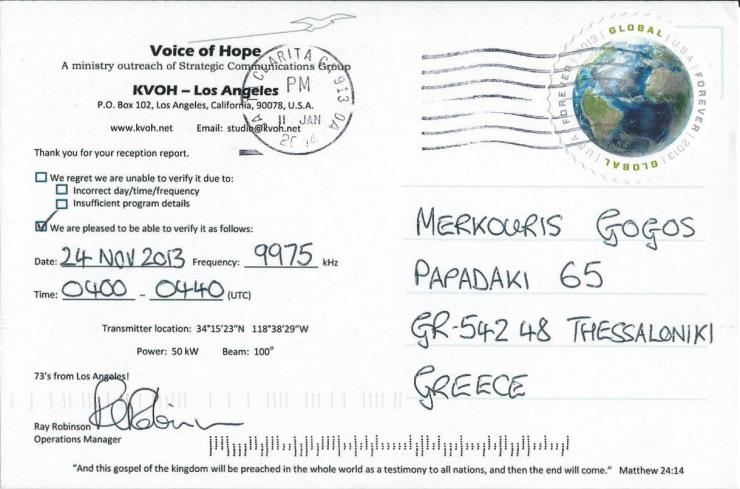 Voice of Hope
A ministry outreach of Strategic Communications Group
KVOH – Los Angeles
P.O. Box 102, Los Angeles, California, 90078, U.S.A.
www.kvoh.net Email: studio@kvoh.net
Thank you for your reception report.
We regret we are unable to verify it due to:
Incorrect day/time/frequency
Insufficient program details
We are pleased to be able to verify it as follows:
Date: 24 NOV 2013 Frequency: 9975 kHz
Time: 0400 – 0440 (UTC)
Transmitter location: 34°15'23"N 118°38'29"W
Power: 50 kW Beam: 100°
73's from Los Angeles!
Ray Robinson
Operations Manager
"And this gospel of the kingdom will be preached in the whole world as a testimony to all nations, and then the end will come." Matthew 24:14
CLARITA CA 913
PM
11 JAN
GLOBAL | USA | FOREVER | 2013 | GLOBAL | USA | FOREVER | 2013
MERKOURIS GOGOS
PAPADAKI 65
GR-542 48 THESSALONIKI
GREECE